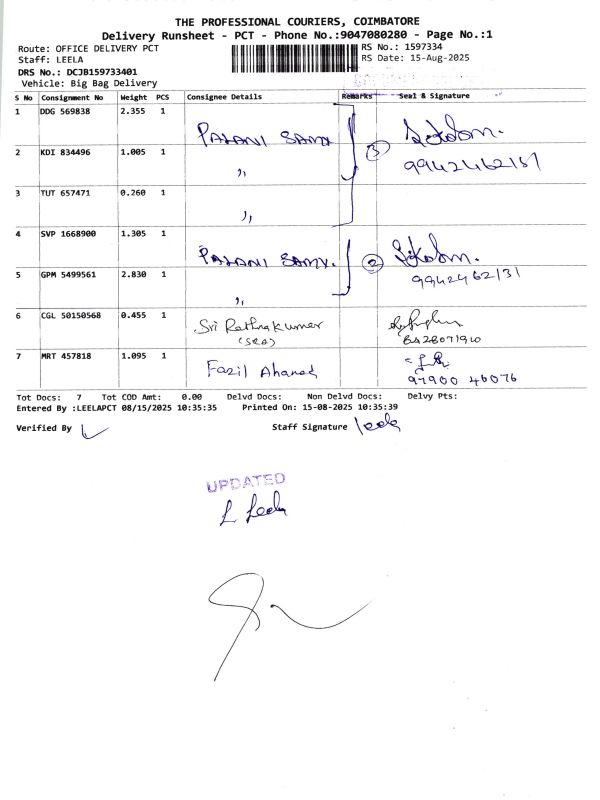 THE PROFESSIONAL COURIERS, COIMBATORE
Delivery Runsheet - PCT - Phone No.:9047080280 - Page No.:1
Route: OFFICE DELIVERY PCT RS No.: 1597334
Staff: LEELA RS Date: 15-Aug-2025
DRS No.: DCJB159733401
Vehicle: Big Bag Delivery
S No Consignment No Weight PCS Consignee Details Remarks Seal & Signature
1 DDG 569838 2.355 1 PALANI SAMY
2 KDI 834496 1.005 1 ,, 3
3 TUT 657471 0.260 1 ,,
4 SVP 1668900 1.305 1 PALANI SAMY. 2
5 GPM 5499561 2.830 1 ,, 9942462131
6 CGL 50150568 0.455 1 Sri Rathnakumar
7 MRT 457818 1.095 1 Fazil Ahamed
97900 46076
Tot Docs: 7 Tot COD Amt: 0.00 Delvd Docs: Non Delvd Docs: Delvy Pts:
Entered By :LEELAPCT 08/15/2025 10:35:35 Printed On: 15-08-2025 10:35:39
Verified By Staff Signature Leela
UPDATED
L Leela